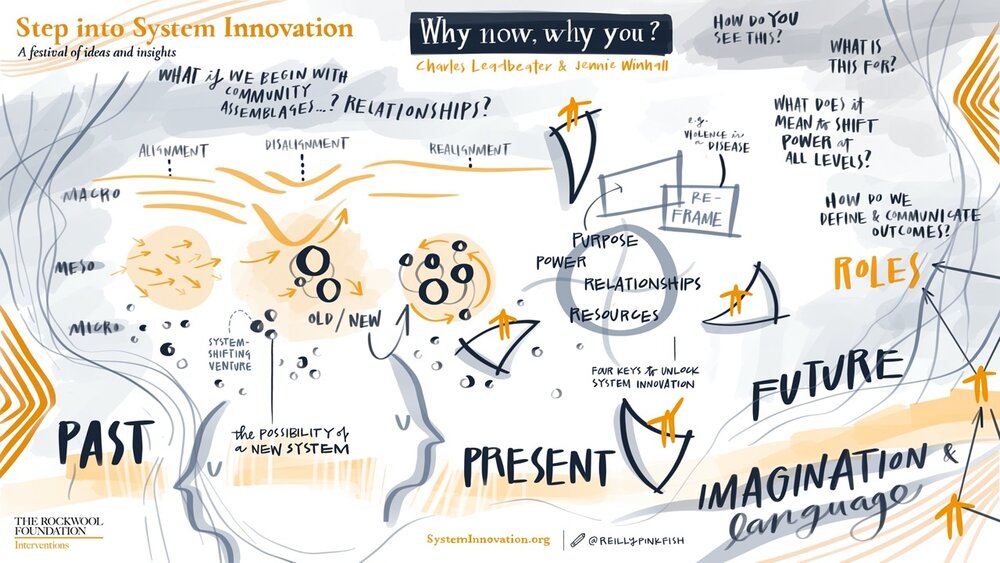 Step into System Innovation
A festival of ideas and insights
Why now, why you?
Charles Leadbeater & Jennie Winhall
HOW DO YOU
SEE THIS?
WHAT IS
THIS FOR?
WHAT if WE BEGIN WITH
COMMUNITY
ASSEMBLAGES...? RELATIONSHIPS?
WHAT DOES it
MEAN to SHIFT
POWER at
ALL LEVELS?
e.g.
VIOLENCE is
a DISEASE
ALIGNMENT
DISALIGNMENT
REALIGNMENT
MACRO
RE-
FRAME
HOW DO WE
DEFINE & COMMUNICATE
OUTCOMES?
PURPOSE
POWER
RELATIONSHIPS
RESOURCES
MESO
ROLES
MICRO
OLD/NEW
SYSTEM-
SHIFTING
VENTURE
FOUR KEYS to UNLOCK
SYSTEM INNOVATION
FUTURE
PAST
the POSSIBILITY of
a NEW SYSTEM
PRESENT
IMAGINATION &
language
THE ROCKWOOL
FOUNDATION
Interventions
SystemInnovation.org
@REILLYPINKFISH